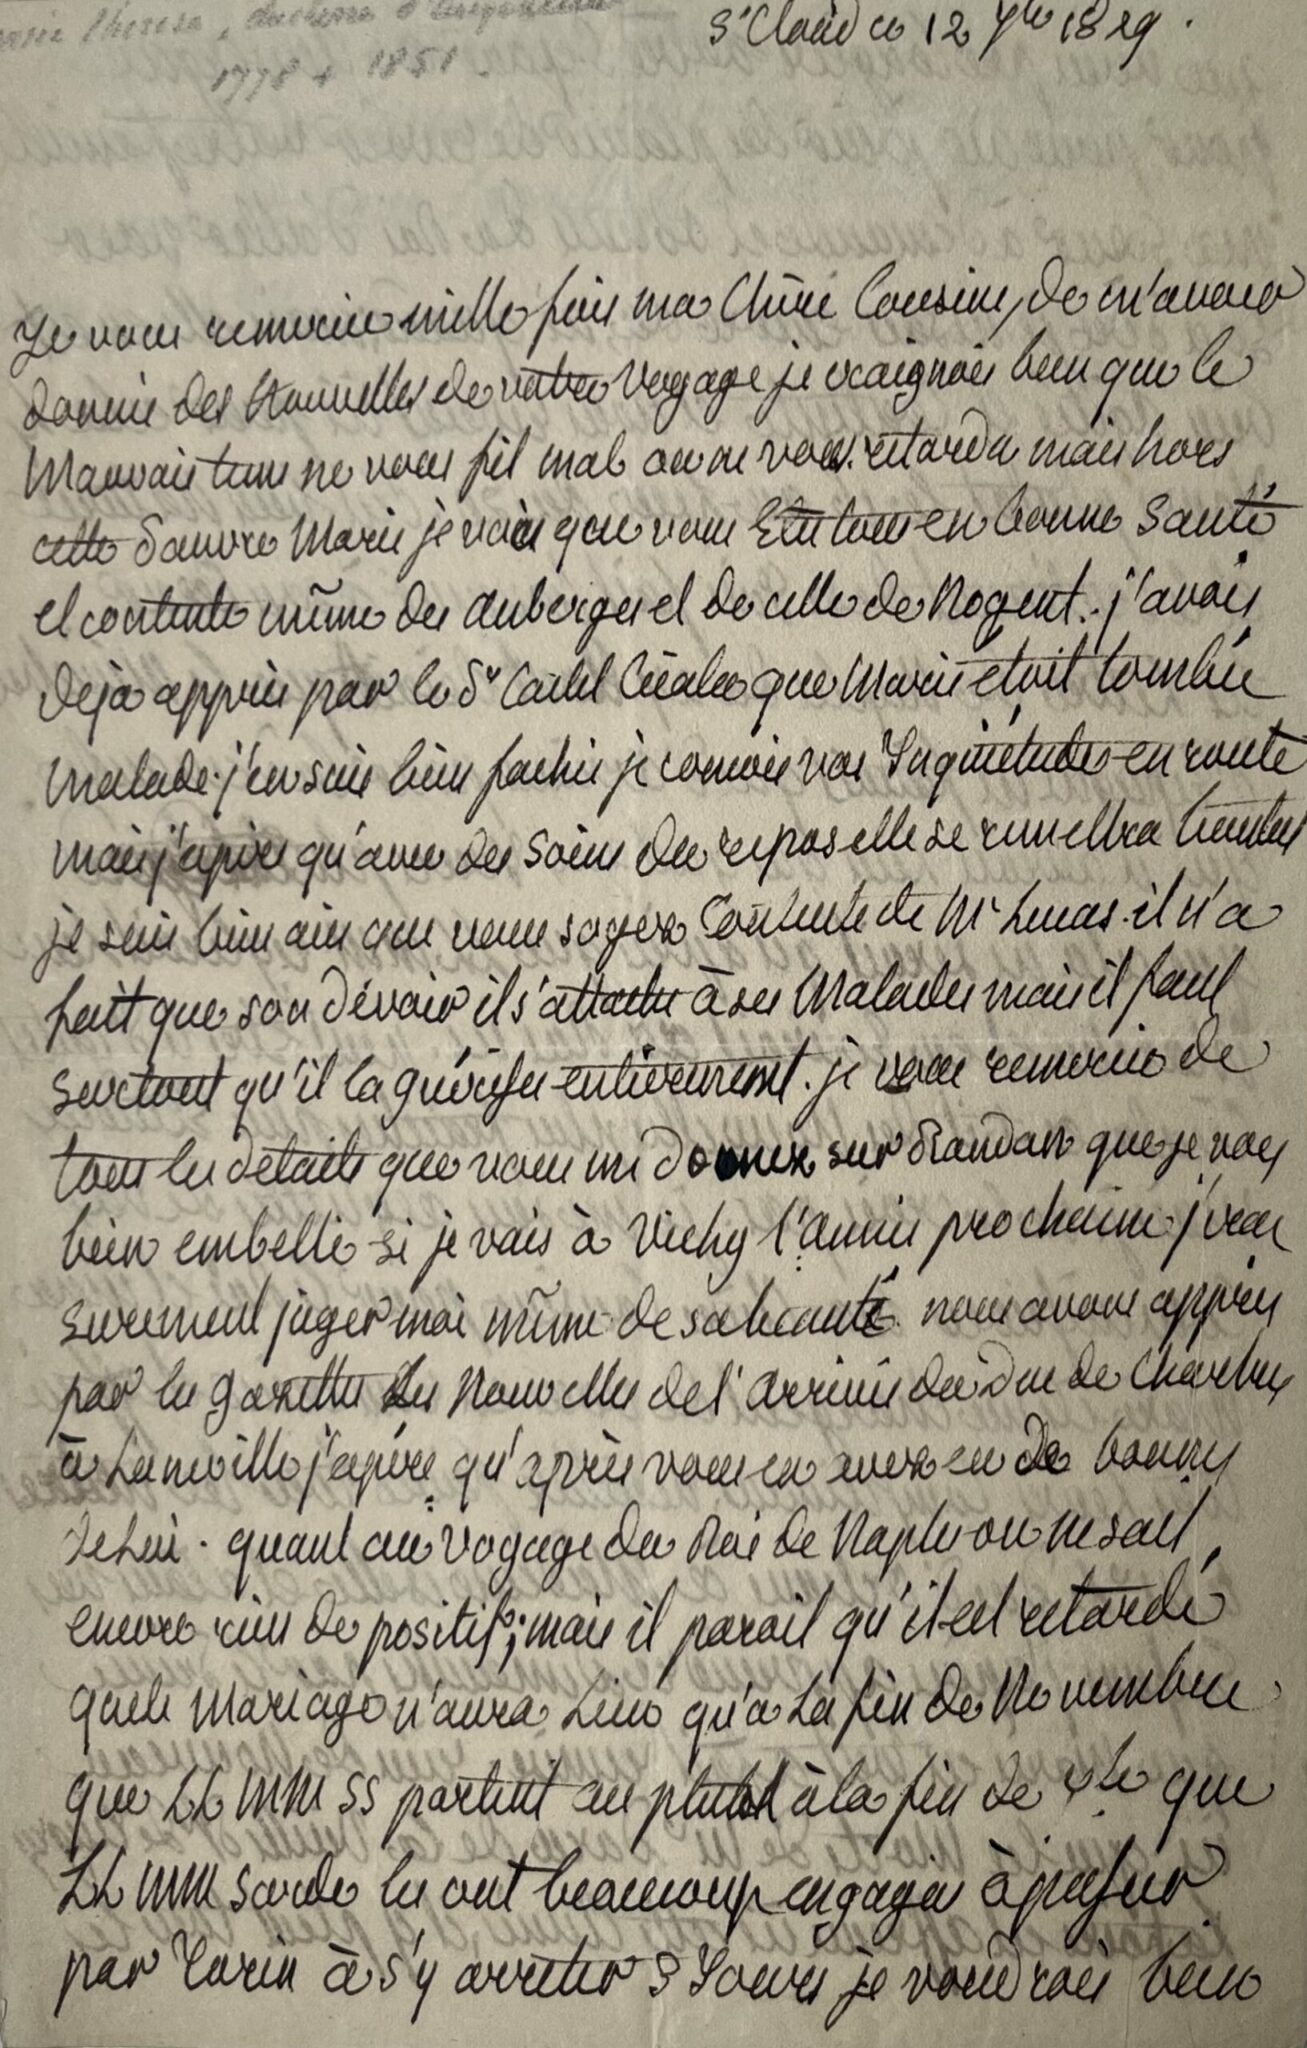 Marie Thérèse, duchesse d'Angoulême
1778 + 1851.
St Cloud ce 12 7bre 1829.
Je vous remercie mille fois ma Chère Cousine, de m'avoir
donné des Nouvelles de votre Voyage je craignois bien que le
Mauvais tems ne vous fit mal ou ne vous retarda mais hors
cette Pauvre Marie je vois que vous Etes tous en bonne Santé
et contente même des auberges et de celle de Nogent. j'avois
deja appris par le Sr que Marie étoit tombée
Malade. j'en suis bien fachée je conçois vos Inquiétudes en route
mais j'espère qu'avec des Soins du repos elle se remettra bientôt
je suis bien aise que vous soyez Contente de Mr Lucas. il n'a
fait que son dévoir il s'attache à ses Malades mais il faut
surtout qu'il la guérisse entierement. je vous remercie de
tous les détails que vous me donnez sur Randan que je vois
bien embelli si je vais à Vichy l'année prochaine j'irai
surement juger moi même de sa beauté. nous avons appris
par les gazettes des Nouvelles de l'Arrivée du Duc de Chartres
à Luneville j'espère qu'après vous en avez eu de bonnes
de Lui. quant au Voyage du Roi de Naples on ne sait
encore rien de positif; mais il paroit qu'il est retardé
que le Mariage n'aura Lieu qu'a La fin de Novembre
que LL MM SS partent au plutot à la fin de 7bre que
LL MM Sarde les ont beaucoup engagés à passer
par Turin à s'y arreter 3 Jours je voudrois bien